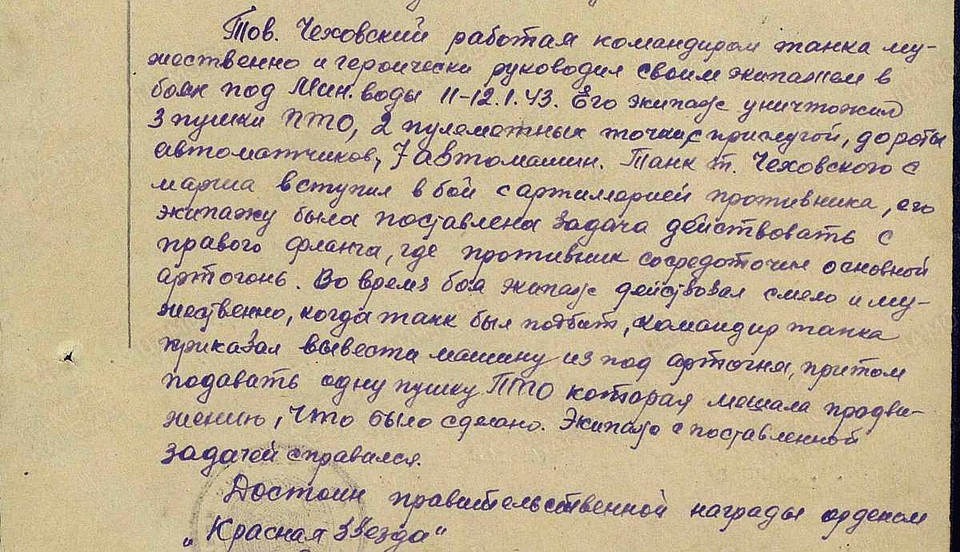 Тов. Чеховский работая командиром танка му-
жественно и героически руководил своим экипажем в
боях под Мин. воды 11-12.1.43. Его экипаж уничтожил
3 пушки ПТО, 2 пулеметных точки с прислугой, до роты
автоматчиков, 7 автомашин. Танк т. Чеховского с
марша вступил в бой с артиллерией противника, его
экипажу была поставлена задача действовать с
правого фланга, где противник сосредоточил основной
артогонь. Во время боя экипаж действовал смело и му-
жественно, когда танк был подбит, командир танка
приказал вывести машину из под артогня, притом
подавать одну пушку ПТО которая мешала продви-
жению, что было сделано. Экипаж с поставленной
задачей справился.
Достоин правительственной награды орденом
„Красная Звезда“